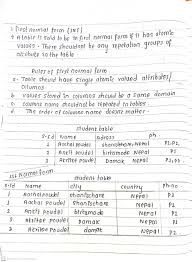 > First normal form (1NF)
→ A table is said to be in first normal form if it has atomic
values. There shouldn't be any repetation groups of
attribute in the table
Rules of first normal form
a. Table should have single atomic valued attributes/
columns
b. values stored in columns should be a same domain
c. columns name shouldn't be repeated in tables
d. The order of columns name doesn't matter
student table
s-id Name address ph.
1 Aachal poudel Shanischare, Nepal P1, P2
2 Anell poudel birtamode Nepal P1
3 Kritee poudel damak, Nepal P2, P3
1st Normal form
student table
s-id Name city country Ph.no
1 Aachal poudel Shanischare Nepal P1
1 Aachal poudel Shanischare Nepal P2
2 Anell poudel birtamode Nepal P1
3 Kritee poudel damak Nepal P2
3 Kritee poudel damak Nepal P3